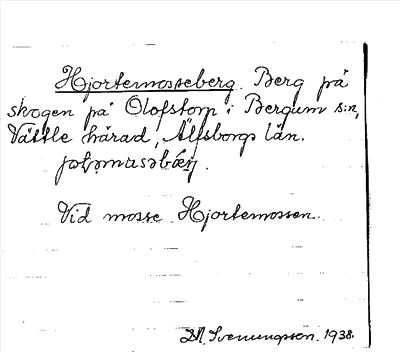 Hjortemosseberg. Berg på
skogen på Olofstorp i Bergum s:n,
Vättle härad, Älfsborgs län.
Vid mosse Hjortemossen.
Svenungsson. 1938.